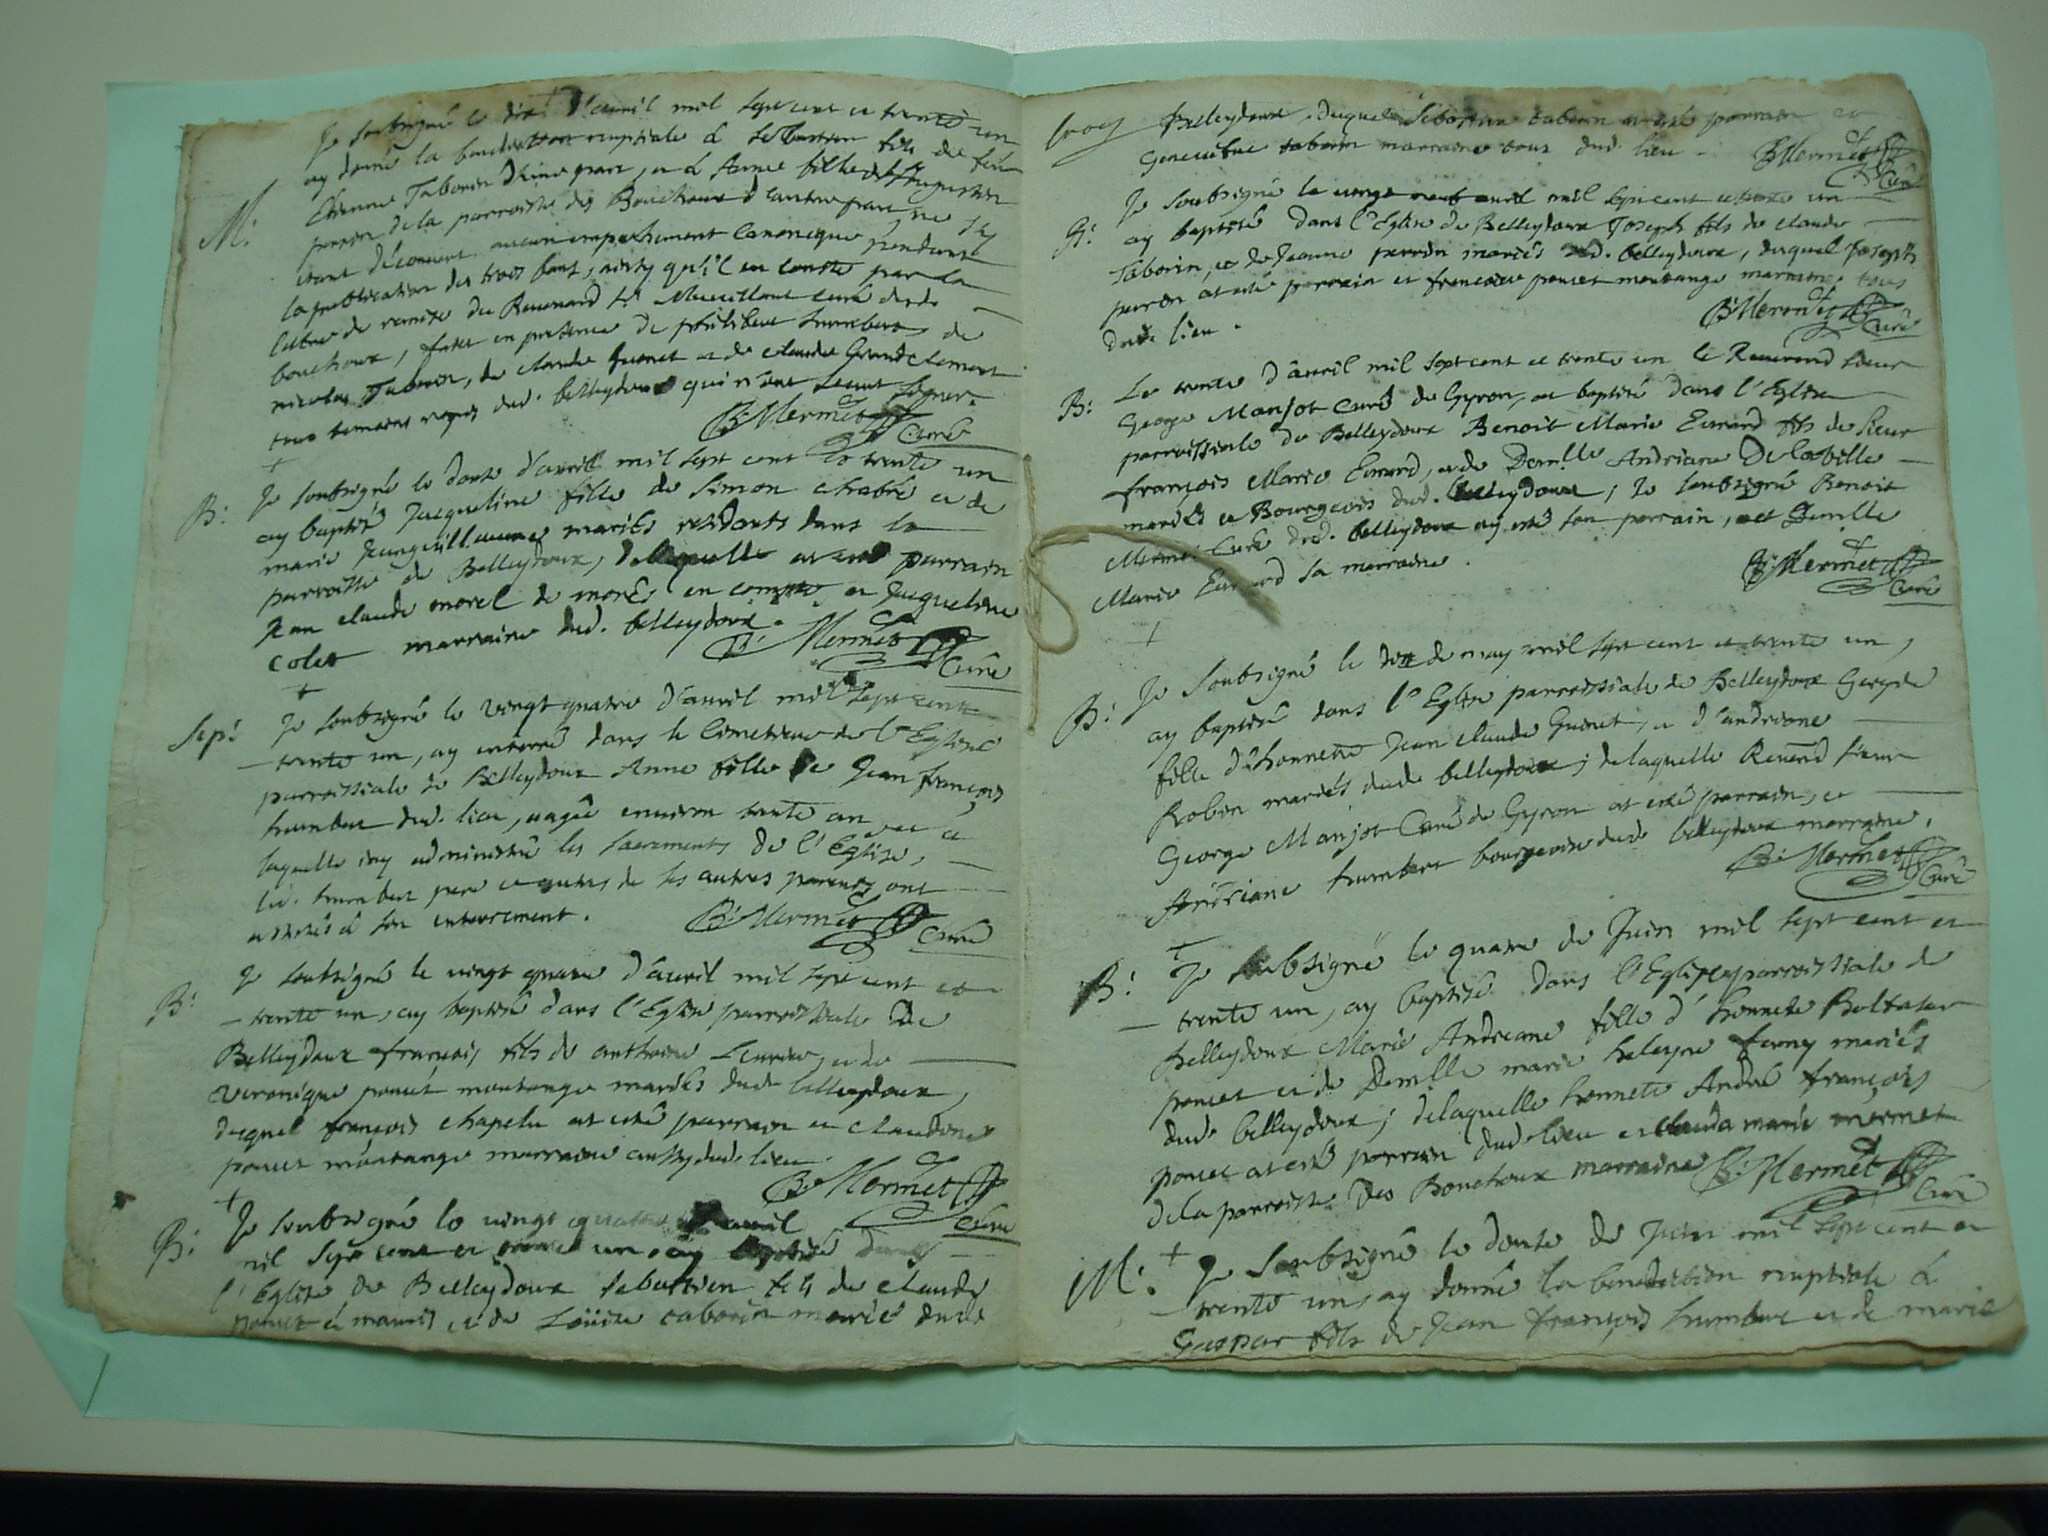 Je soubsigné le dix d'avril mil sept cent et trente un
ay donné la benediction nuptiale à Sebastien fils de feu
M: Etienne Taborin d'une part, et à Anne fille d'Augustin
perrin de la parroisse des Bouchoux d'autre part, ne s'y
etant découvert aucun empechement canonique pendant
la publication des trois bans, ainsy qu'il en conste par la
lettre de remise du Reverend Sr curé dud.
bouchoux, fait en presence de philibert humbert, de
nicolas Taborin, de claude Guenet et de claude Grandclement
tous temoins requis dud. belleydoux qui n'ont sceut signer.
B: Mermet Curé
B: Je soubsigné le douze d'avril mil sept cent et trente un
ay baptisé Jacqueline fille de Simon chabré et de
marie mariés residants dans la
parroisse de Belleydoux, de laquelle at esté parrain
Jean claude morel de morés en comté et Jacqueline
colet marraine dud. belleydoux.
B: Mermet Curé
Sep: Je soubsigné le vingt quatre d'avril mil sept cent
trente un, ay enterré dans le cimetiere de l'Eglise
parroissiale de Belleydoux Anne fille de Jean françois
humbert dud. lieu, aagée environ trente an à
laquelle j'ay administré les sacrements de l'Eglise,
led. humbert pere et autres de ses autres parents ont
assistés à son enterrement.
B: Mermet Curé
B: Je soubsigné le vingt quatre d'avril mil sept cent et
trente un, ay baptisé dans l'Eglise parroissiale de
Belleydoux françois fils de anthoine et de
veronique poncet montange mariés dud. belleydoux,
duquel françois chapelu at esté parrain et claudine
poncet montange marraine aussy dud. lieu.
B: Mermet Curé
B: Je soubsigné le vingt quatre d'avril
mil sept cent et trente un, ay baptisé dans
l'Eglise de Belleydoux sebastien fils de claude
poncet à mauris et de Loüise taborin mariés dud.
Belleydoux, duquel Sebastien taborin at esté parrain et
Genevieve taborin marraine tous dud. lieu.
B: Mermet Curé
B: Je soubsigné le vingt neuf avril mil sept cent et trente un
ay baptisé dans l'Eglise de Belleydoux Joseph fils de claude
Taborin, et de Jeanne perrin mariés dud. belleydoux, duquel Joseph
perrin at esté parrain et françoise poncet montange marraine tous
dud. lieu.
B: Mermet Curé
B: Le trente d'avril mil sept cent et trente un le Reverend sieur
George Manjot curé de Gyron, at baptisé dans l'Eglise
parroissiale de Belleydoux Benoit Marie Evrard fils de Sieur
françois Marie Evrard, et de Demlle Andriane
mariés et Bourgeois dud. belleydoux; Je soubsigné Benoit
Mermet Curé dud. belleydoux ay esté son parrain, et Demlle
Marie Evrard sa marraine.
B: Mermet Curé
B: Je soubsigné le de may mil sept cent et trente un,
ay baptisé dans l'Eglise parroissiale de Belleydoux
fille d'honnete Jean claude Guenet, et d'andriane
Robin mariés dud. belleydoux; de laquelle Reverend sieur
George Manjot Curé de Gyron at esté parrain, et
Andriane humbert bourgeoise dud. belleydoux marraine.
B: Mermet Curé
B: Je soubsigné le quatre de Juin mil sept cent et
trente un, ay baptisé dans l'Eglise parroissiale de
belleydoux Marie Andreane fille d'honnete Baltasar
poncet et de Demlle marie mariés
dud. belleydoux; de laquelle honnete André françois
poncet at esté parrain dud. lieu et clauda marie mermet
de la parroisse des Bouchoux marraine B: Mermet Curé
M: Je soubsigné le douze de Juin mil sept cent et
trente un, ay donné la benediction nuptiale à
Gaspar fils de Jean françois humbert et de marie